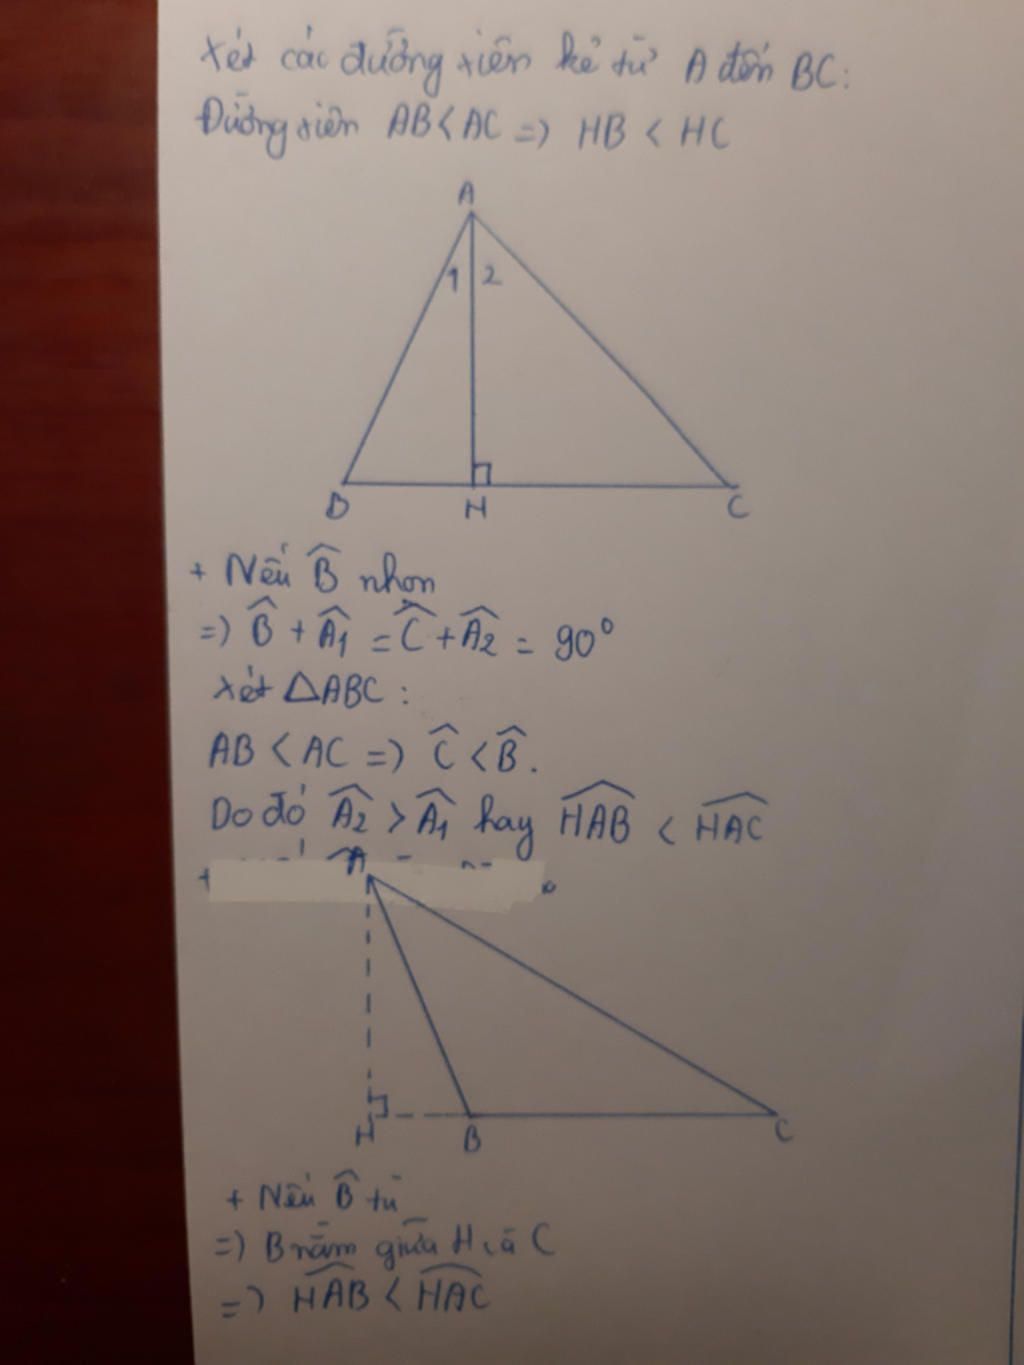 Xét các đường xiên kẻ từ A đến BC:
Đường xiên AB < AC => HB < HC
A
1 2
B H C
+ Nếu B̂ nhọn
=> B̂ + Â1 = Ĉ + Â2 = 90°
Xét △ABC:
AB < AC => Ĉ < B̂.
Do đó Â2 > Â1 hay HAB̂ < HAĈ
+
A
H B C
+ Nếu B̂ tù
=> B nằm giữa H và C
=> HAB̂ < HAĈ